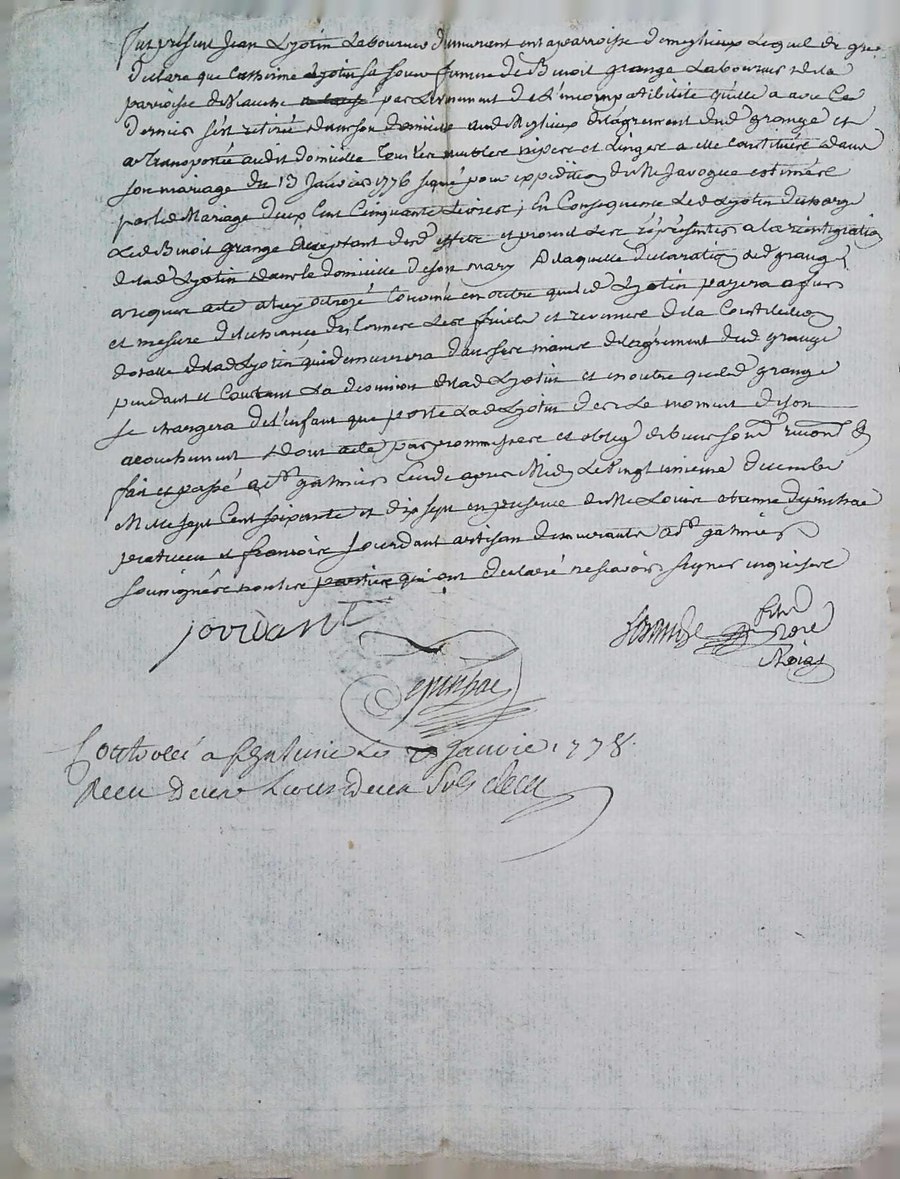 fut présent Jean Lyotin Laboureur demeurant en la parroisse de meylieux Lequel de gré
declare que Catherine Lyotin sa soeur femme de Benoit grange Laboureur de la
parroisse de par L'evenement de L'incompatibilité qu'elle a avec Ce
dernier s'est retirée dans son domicille aud Meylieux de l'agrement dud grange et
a transportée audit domicille tous les meubles nipes et Linges a elle Constitués dans
son mariage du 13 Janvier 1776 signé pour expedition du Me Javogue estimées
par led Mariage deux Cent Cinquante Livres; En Consequence Led Lyotin decharge
Led Benoit Grange acceptant desd effets et promet Les représenter a la reintegration
de lad Lyotin dans le domicille de son mary De laquelle declaration led grange
a requis acte a luy octroyé Convenu en outre que led Lyotin payera a fur
et mesure d'echeance des termes Les fruits et revenus de la Constitution
dotalle de lad Lyotin qui demeurera dans ses mains de l'agrement dud grange
pendant et Constant La desunion de lad Lyotin et en outre que led grange
se chargera de l'enfant que porte Lad Lyotin des Le moment de son
acouchement dont acte par prommesses et oblig de biens soum renonc &
fait et passé a St galmier Etude apres Midy Le vingt unieme decembre
Mille sept Cent soixante et dix sept en presence de Me Louis etienne depinhac
praticien et françois Jourdant artisan demeurants a St galmier
soussignés non les parties qui ont declaré ne scavoir signer enquises
jourdant
depinhac
Controllé a St galmier Le janvier 1778
Recu